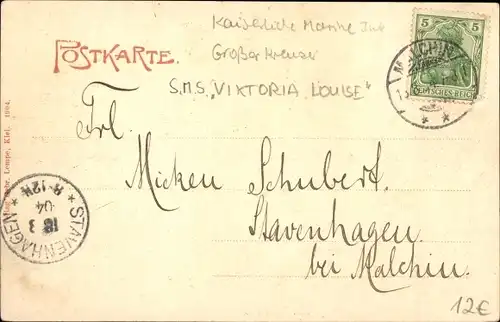 Kaiserliche Marine
Großer Kreuzer
S.M.S. „VIKTORIA LOUISE"
POSTKARTE.
5 5
DEUTSCHES REICH
MALCHIN
Frl.
Micken Schubert.
Stavenhagen
bei Malchin.
STAVENHAGEN
18 3
04
8-12N
Lempe, Kiel. 1904.
12€